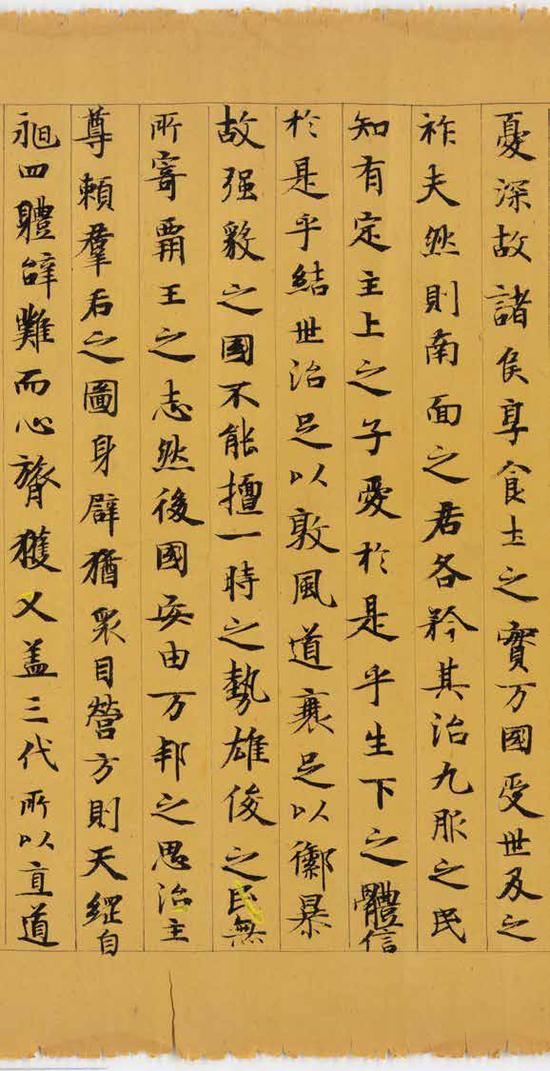 憂深故諸侯享食土之實万國受世及之
祚夫然則南面之君各矜其治九服之民
知有定主上之子愛於是乎生下之體信
於是乎結世治足以敦風道衰足以御暴
故强毅之國不能擅一時之勢雄俊之民無
所寄霸王之志然後國安由万邦之思治主
尊賴羣后之圖身譬猶衆目營方則天綱自
昶四體辭難而心膂獲乂蓋三代所以直道